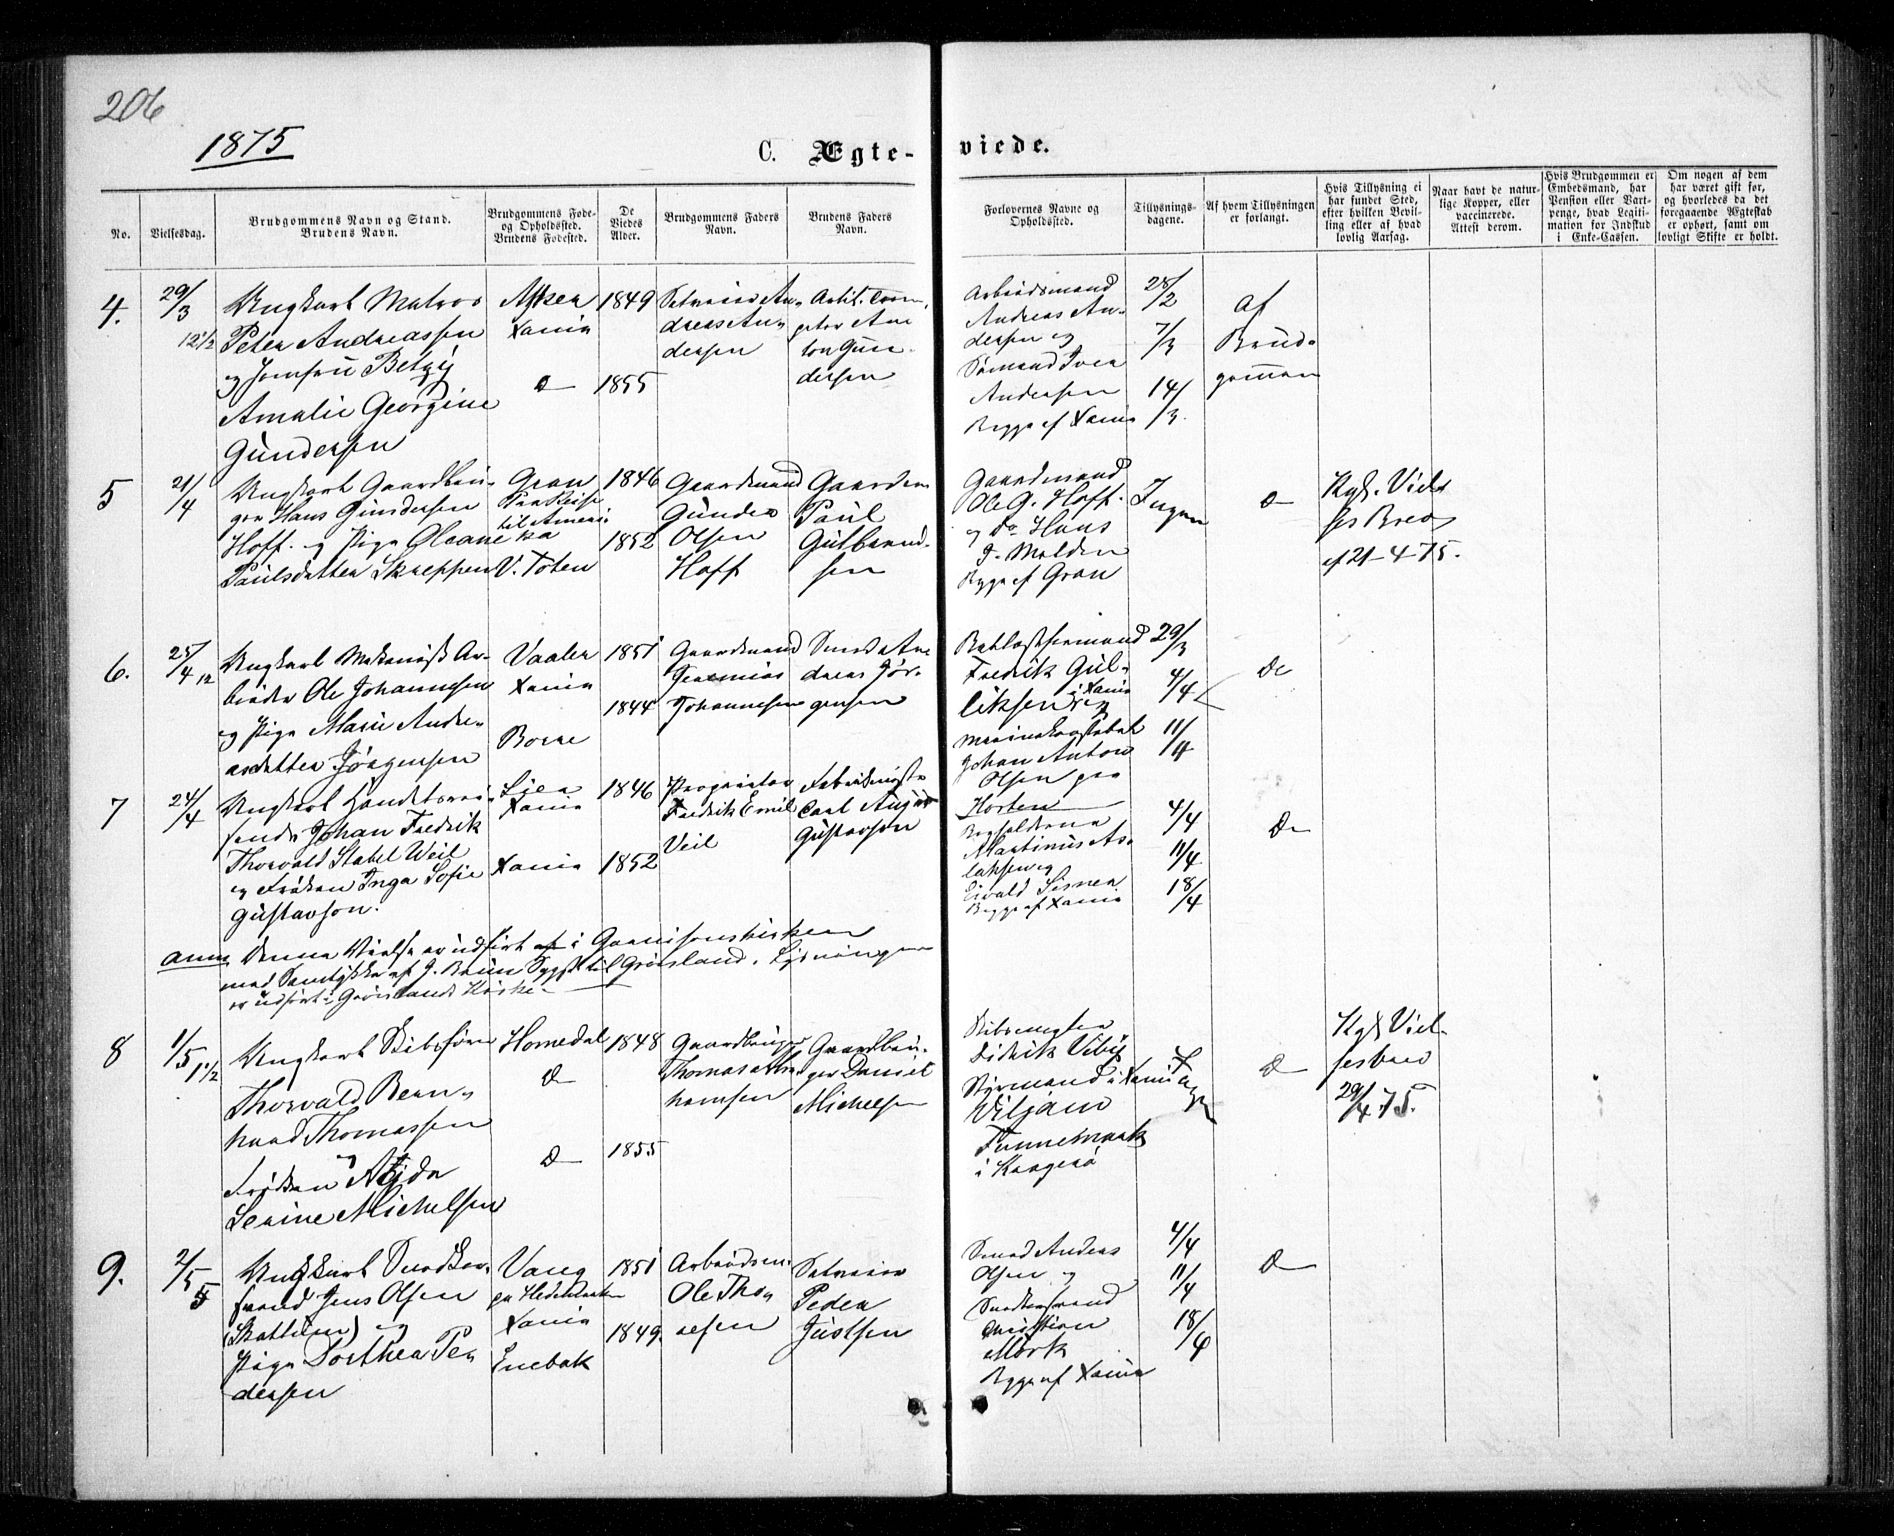 206
1875
C. Ægte-viede.
No.
Vielsesdag.
Brudgommens Navn og Stand.
Brudens Navn.
Brudgommens Føde-
og Opholdssted.
Brudens Fødested.
De
Viedes
Alder.
Brudgommens Faders
Navn.
Brudens Faders
Navn.
Forlovernes Navne og
Opholdssted.
Tillysnings-
dagene.
Af hvem Tillysningen
er forlangt.
Hvis Tillysning ei
har fundet Sted,
efter hvilken Bevil-
ling eller af hvad
lovlig Aarsag.
Naar havt de natur-
lige Kopper, eller
vaccinerede.
Attest derom.
Hvis Brudgommen er
Embedsmand, har
Pension eller Vart-
penge, hvad Legiti-
mation for Indskud
i Enke-Cassen.
Om nogen af dem
har været gift før,
og hvorledes da det
foregaaende Ægteskab
er ophørt, samt om
lovligt Skifte er holdt.
4.
29/3
12 1/2
Ungkarl Matros
Peter Andreassen
og Jomfru Betzy
Amalie Georgine
Gundersen
Asker
Xania
1849
1855
An-
dreas An-
dersen
Gun-
dersen
Arbeidsmand
Andreas An-
dersen og
Sømand Iver
Andersen
Begge af Xania
28/2
7/3
14/3
af
Brud-
gommen
5
21/4
Ungkarl Gaardbru-
ger Hans Gundersen
Hoff. og Pige Oleane
Paulsdatter Skreppen
Gran
Paa Reise
til Ameri-
ka
V. Toten
1846
1852
Gaardmand
Gunder
Olsen
Hoff
Gaardm.
Paul
Gulbrand-
sen
Gaardmand
Ole G. Hoff.
og Do Hans
J. Molden
Begge af Gran
Ingen
Do
Kgl. Viel-
ses Brev
af 21-4-75.
6.
25/4 12
Ungkarl Mekanisk Ar-
beider Ole Johannesen
og Pige Marie Andre-
asdatter Jørgensen
Vaaler
Xania
Borre
1851
1844
Gaardmand
Jeremias
Johannesen
Smed An-
dreas Jør-
gensen
Fredrik Gul-
liksen i Xania
og
Johan Anton
Olsen paa
Horten
29/3
4/4
11/4
Do
7
24/4
Ungkarl Handelsrei-
sende Johan Fredrik
Thorvald Stabel Weil
og Frøken Inga Sofie
Gustavson.
Lier
Xania
Xania
1846
1852
Proprietær
Fredrik Emil
Veil
Carl August
Gustavson
Martinus As-
laksen og
Begge af Xania
4/4
11/4
18/4
Do
Anm Denne Vielse er udført i Garnisonskirken
med Samtykke af J. Brun til Grønland. Lysningen
er udført i Grønlands Kirke.
8
1/5 1 1/2
Ungkarl Skibsfører
Thorvald Bern-
hard Thomassen
og
Frøken Alida
Severine Michelsen
Homedal
Do
Do
1848
1855
Gaardbruger
Thomas Abra-
hamsen
Gaardbru-
ger Daniel
Michelsen
Skibsmægler
Didrik Vibe
Styrmand i Xania
Viljam
Fennemark
i Kragerø
Ingen
Do
Kgl Viel-
sesbrev
29/4 75.
9.
2/5
5
Ungkarl Snedker-
svend Jens Olsen
(Skattum) og
Pige Dorthea Pe-
dersen
Vang
paa Hedemarken
Xania
Enebak
1851
1849.
Arbeidsm.
Ole Tho-
resen
Peder
Justsen
Smed Anders
Olsen og
Snedkersvend
Christian
Mørk
Begge af Xania
4/4
11/4
18/4
Do